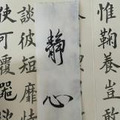 惟鞠養豈敢
靜心
談彼短靡恃
使可覆器